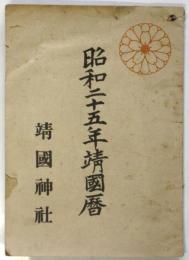 昭和二十五年靖國暦
靖國神社